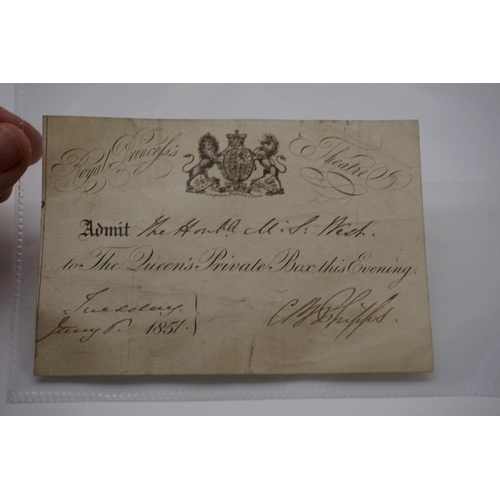 Royal Princess's Theatre
Admit The Honble. M. S. West.
to The Queen's Private Box this Evening.
Tuesday.
Jany 1851.
C B Phipps.